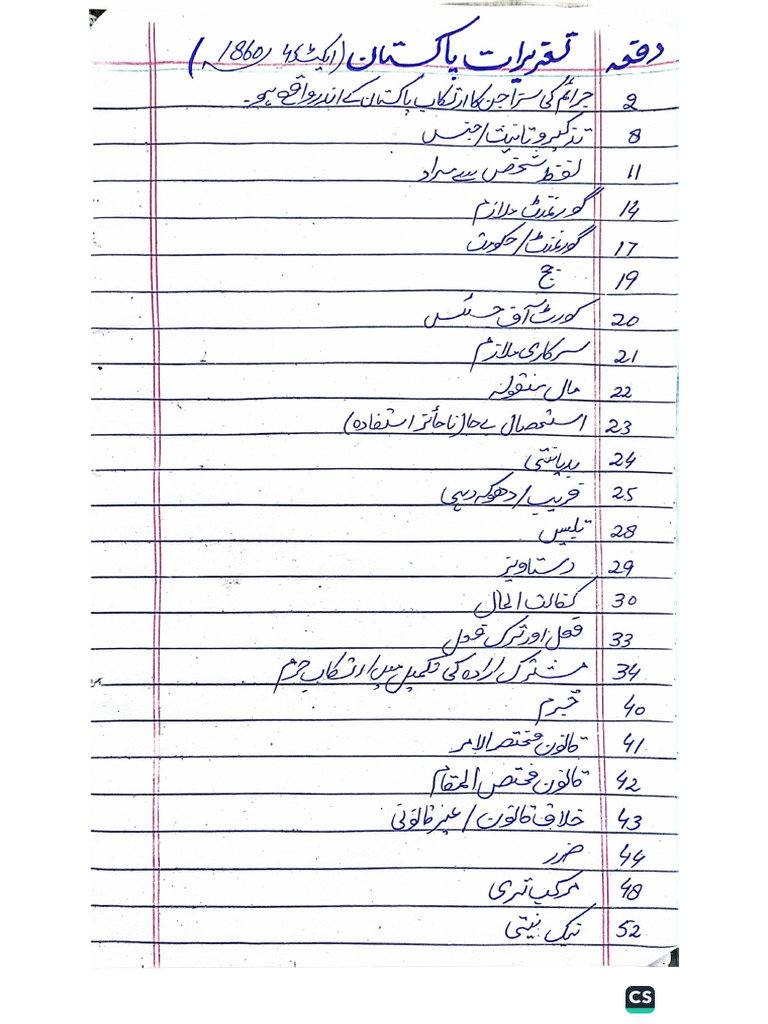 دفعہ تعزیرات پاکستان (ایکٹ 45، 1860ء)
2 جرائم کی سزا جن کا ارتکاب پاکستان کے اندر واقع ہو۔
8 تذکیر و تانیث/جنس
11 لفظ شخص سے مراد
14 گورنمنٹ ملازم
17 گورنمنٹ/حکومت
19 جج
20 کورٹ آف جسٹس
21 سرکاری ملازم
22 مال منقولہ
23 استحصال بے جا (ناجائز استفادہ)
24 بددیانتی
25 فریب/دھوکہ دہی
28 تلبیس
29 دستاویز
30 کفالت المال
33 فعل اور ترک فعل
34 مشترک ارادہ کی تکمیل میں ارتکاب جرم
40 جُرم
41 قانون مختص الامر
42 قانون مختص المقام
43 خلاف قانون/غیر قانونی
44 ضرر
48 مرکب تری
52 نیک نیتی
CS